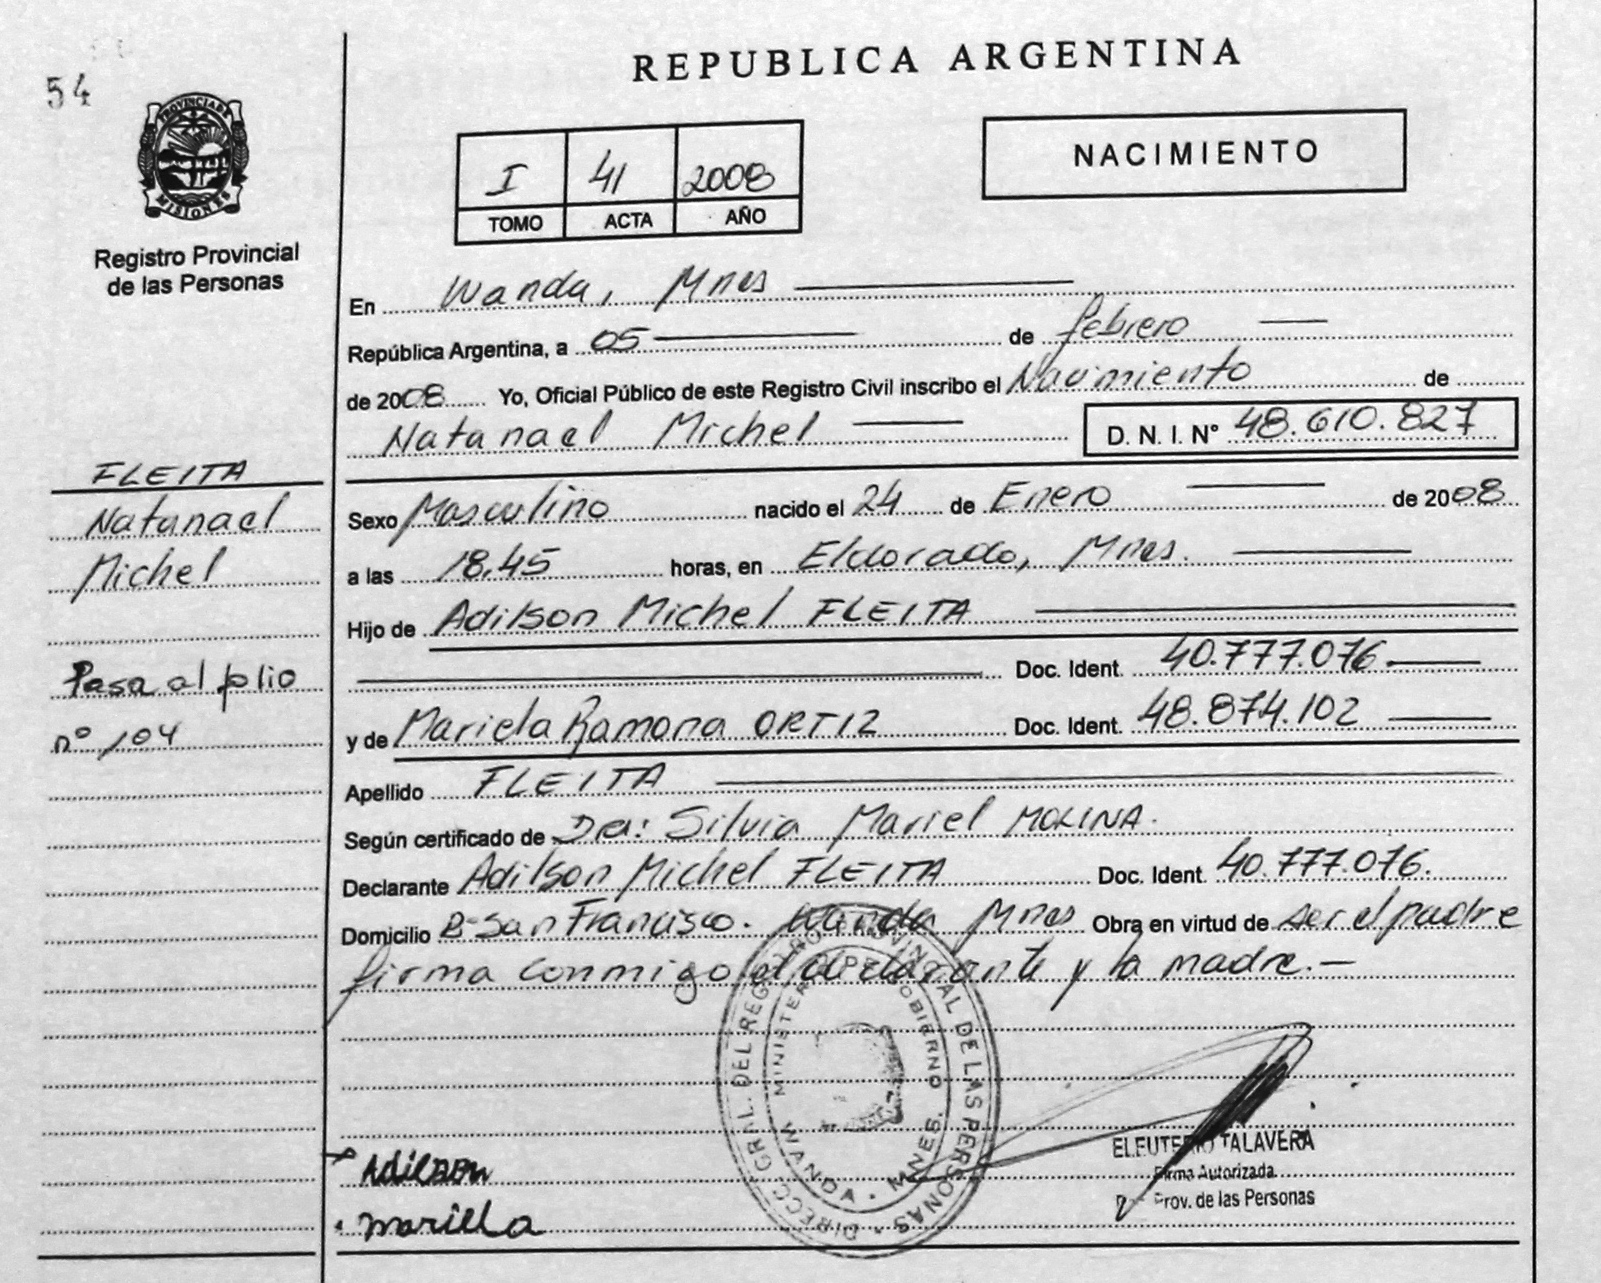 54
REPUBLICA ARGENTINA
PROVINCIA DE
MISIONES
Registro Provincial
de las Personas
I 41 2008
TOMO ACTA AÑO
NACIMIENTO
En Wanda, Mnes
República Argentina, a 05 de febrero
de 2008 Yo, Oficial Público de este Registro Civil inscribo el Nacimiento de
Natanael Michel D. N. I. Nº 48.610.827
FLEITA
Natanael
Michel
Pasa al folio
nº 104
Sexo Masculino nacido el 24 de Enero de 2008
a las 18.45 horas, en Eldorado, Mnes.
Hijo de Adilson Michel FLEITA
Doc. Ident. 40.777.076
y de Mariela Ramona ORTIZ Doc. Ident. 48.874.102
Apellido FLEITA
Según certificado de Dra: Silvia Mariel MOLINA.
Declarante Adilson Michel FLEITA Doc. Ident. 40.777.076.
Domicilio Bº San Francisco. Wanda Mnes Obra en virtud de ser el padre
firma conmigo el declarante y la madre.—
DIRECC. GRAL. DEL REGISTRO PROVINCIAL DE LAS PERSONAS
MINISTERIO DE GOBIERNO
WANDA - MNES.
ELEUTERIO TALAVERA
Firma Autorizada
Prov. de las Personas
Adilson